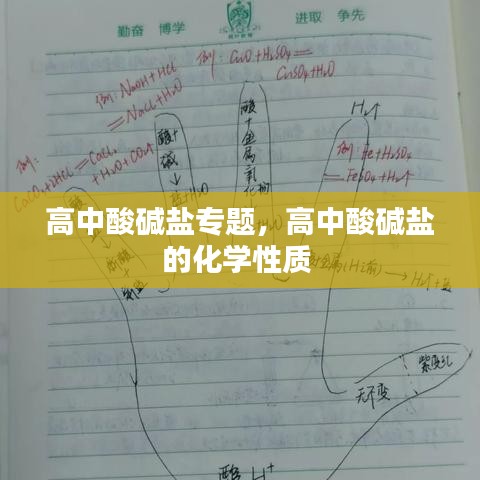 勤奋 博学
进取 争先
例: CuO+H₂SO₄=
CuSO₄+H₂O
例: NaOH+HCl
=NaCl+H₂O
例:
CaCO₃+2HCl=CaCl₂
+H₂O+CO₂↑
酸+碱→盐+H₂O
酸+金属氧化物
H₂↑
例: Fe+H₂SO₄
=FeSO₄+H₂↑
高中酸碱盐专题,高中酸碱盐
的化学性质
金属(H之前)→H₂↑+盐
紫变红
无不变
酸 H⁺